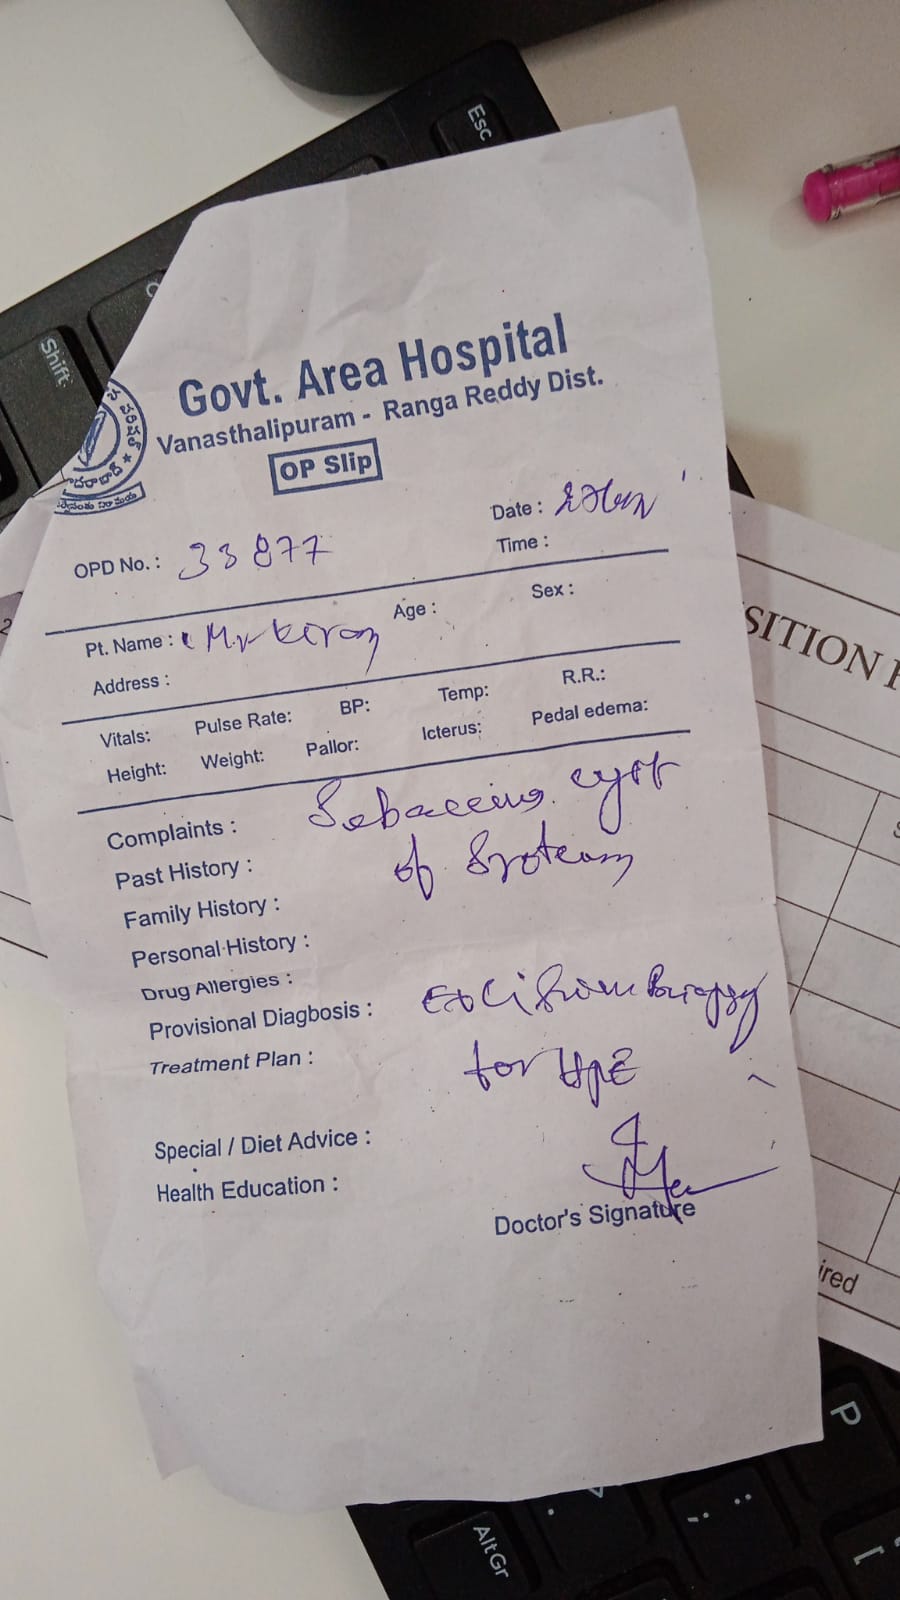 Govt. Area Hospital
Vanasthalipuram - Ranga Reddy Dist.
OP Slip
OPD No. : 33877
Date :
Time :
Pt. Name : Mr Kiran
Age :
Sex :
Address :
Vitals: Pulse Rate: BP: Temp: R.R.:
Height: Weight: Pallor: Icterus: Pedal edema:
Complaints : Sebaceous cyst
Past History : of
Family History :
Personal History :
Drug Allergies :
Provisional Diagbosis : Excision Biopsy
Treatment Plan : for HPE
Special / Diet Advice :
Health Education :
Doctor's Signature
SITION
ired
Esc
Shift
AltGr
P